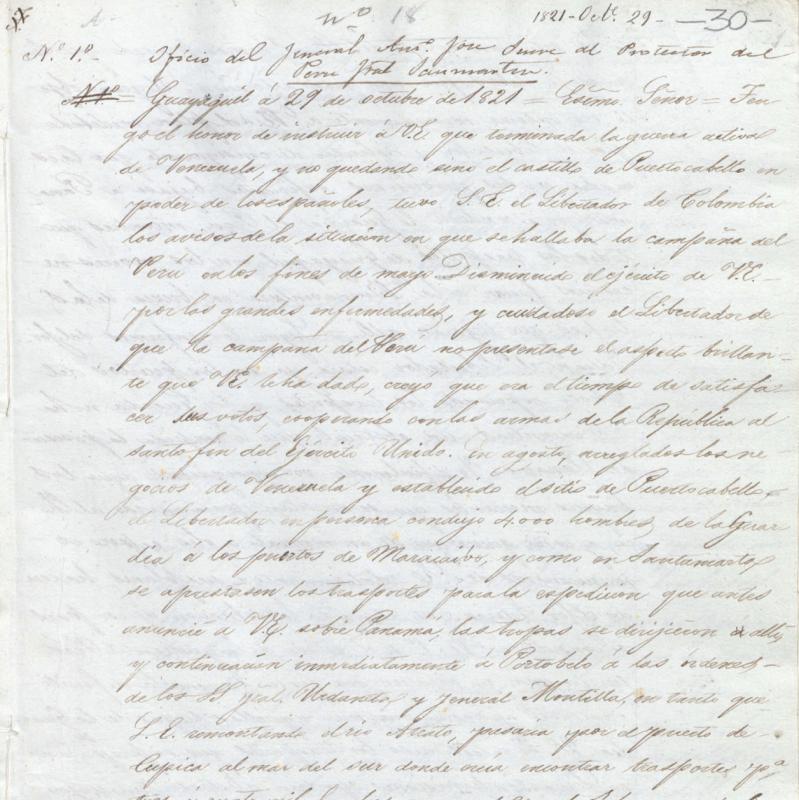 Nº 18 1821 - Oct.e 29 - - 30 -
N.º 1.º Oficio del Jeneral Ant.º José Sucre al Protector del
Perú Jral Sanmartin.
Nº 1º = Guayaquil á 29 de octubre de 1821 = Escmo. Señor = Ten-
go el honor de instruir á V.E. que terminada la guerra activa
de Venezuela, y no quedando sino el castillo de Puertocabello en
poder de los españoles, tuvo S.E. el Libertador de Colombia
los avisos de la situacion en que se hallaba la campaña del
Perú en los fines de mayo. Disminuido el ejército de V.E.
por las grandes enfermedades, y cuidadoso el Libertador de
que la campaña del Perú no presentase el aspecto brillan-
te que V.E. le ha dado, creyo que era el tiempo de satisfa-
cer sus votos, cooperando con las armas de la República al
santo fin del Ejército Unido. En agosto, arreglados los ne-
gocios de Venezuela y establecido el sitio de Puertocabello,
el Libertador en persona condujo 4.000 hombres, de la Guar
dia á los puertos de Maracaivo, y como en Santamarta,
se aprestasen los trasportes para la espedicion que antes
anuncié á V.E. sobre Panamá, las tropas se dirijieron allí,
y continuacion inmediatamente á Portobelo á las órdenes
de los SS jral. Urdaneta, y jeneral Montilla, en tanto que
S.E. remontando el rio Atrato, pasaria por el puerto de
Cupica al mar del sur donde creia encontrar trasportes p.ª